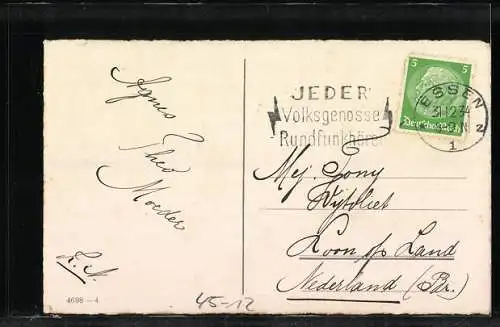 Agnes & Theo
Moeder
Z. A.
4698 — 4
45-12
JEDER
Volksgenosse
Rundfunkhörer
5 5
Deutsches Reich
ESSEN
31.12.34
1
N
Mej. Tony
Wijtvliet
Loon op Land
Nederland (Br.)